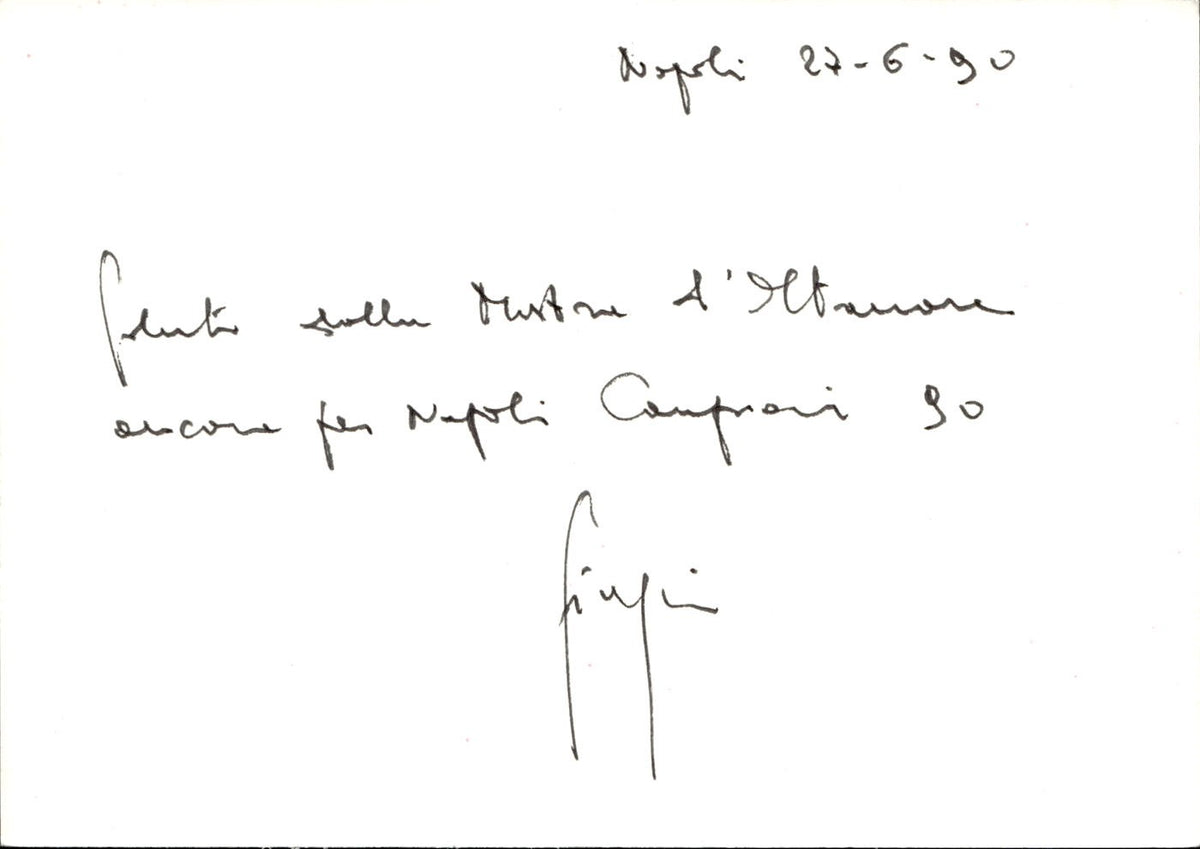 Napoli 27-6-90
Saluti dalla Mostra d'Oltremare
ancora per Napoli Campioni 90